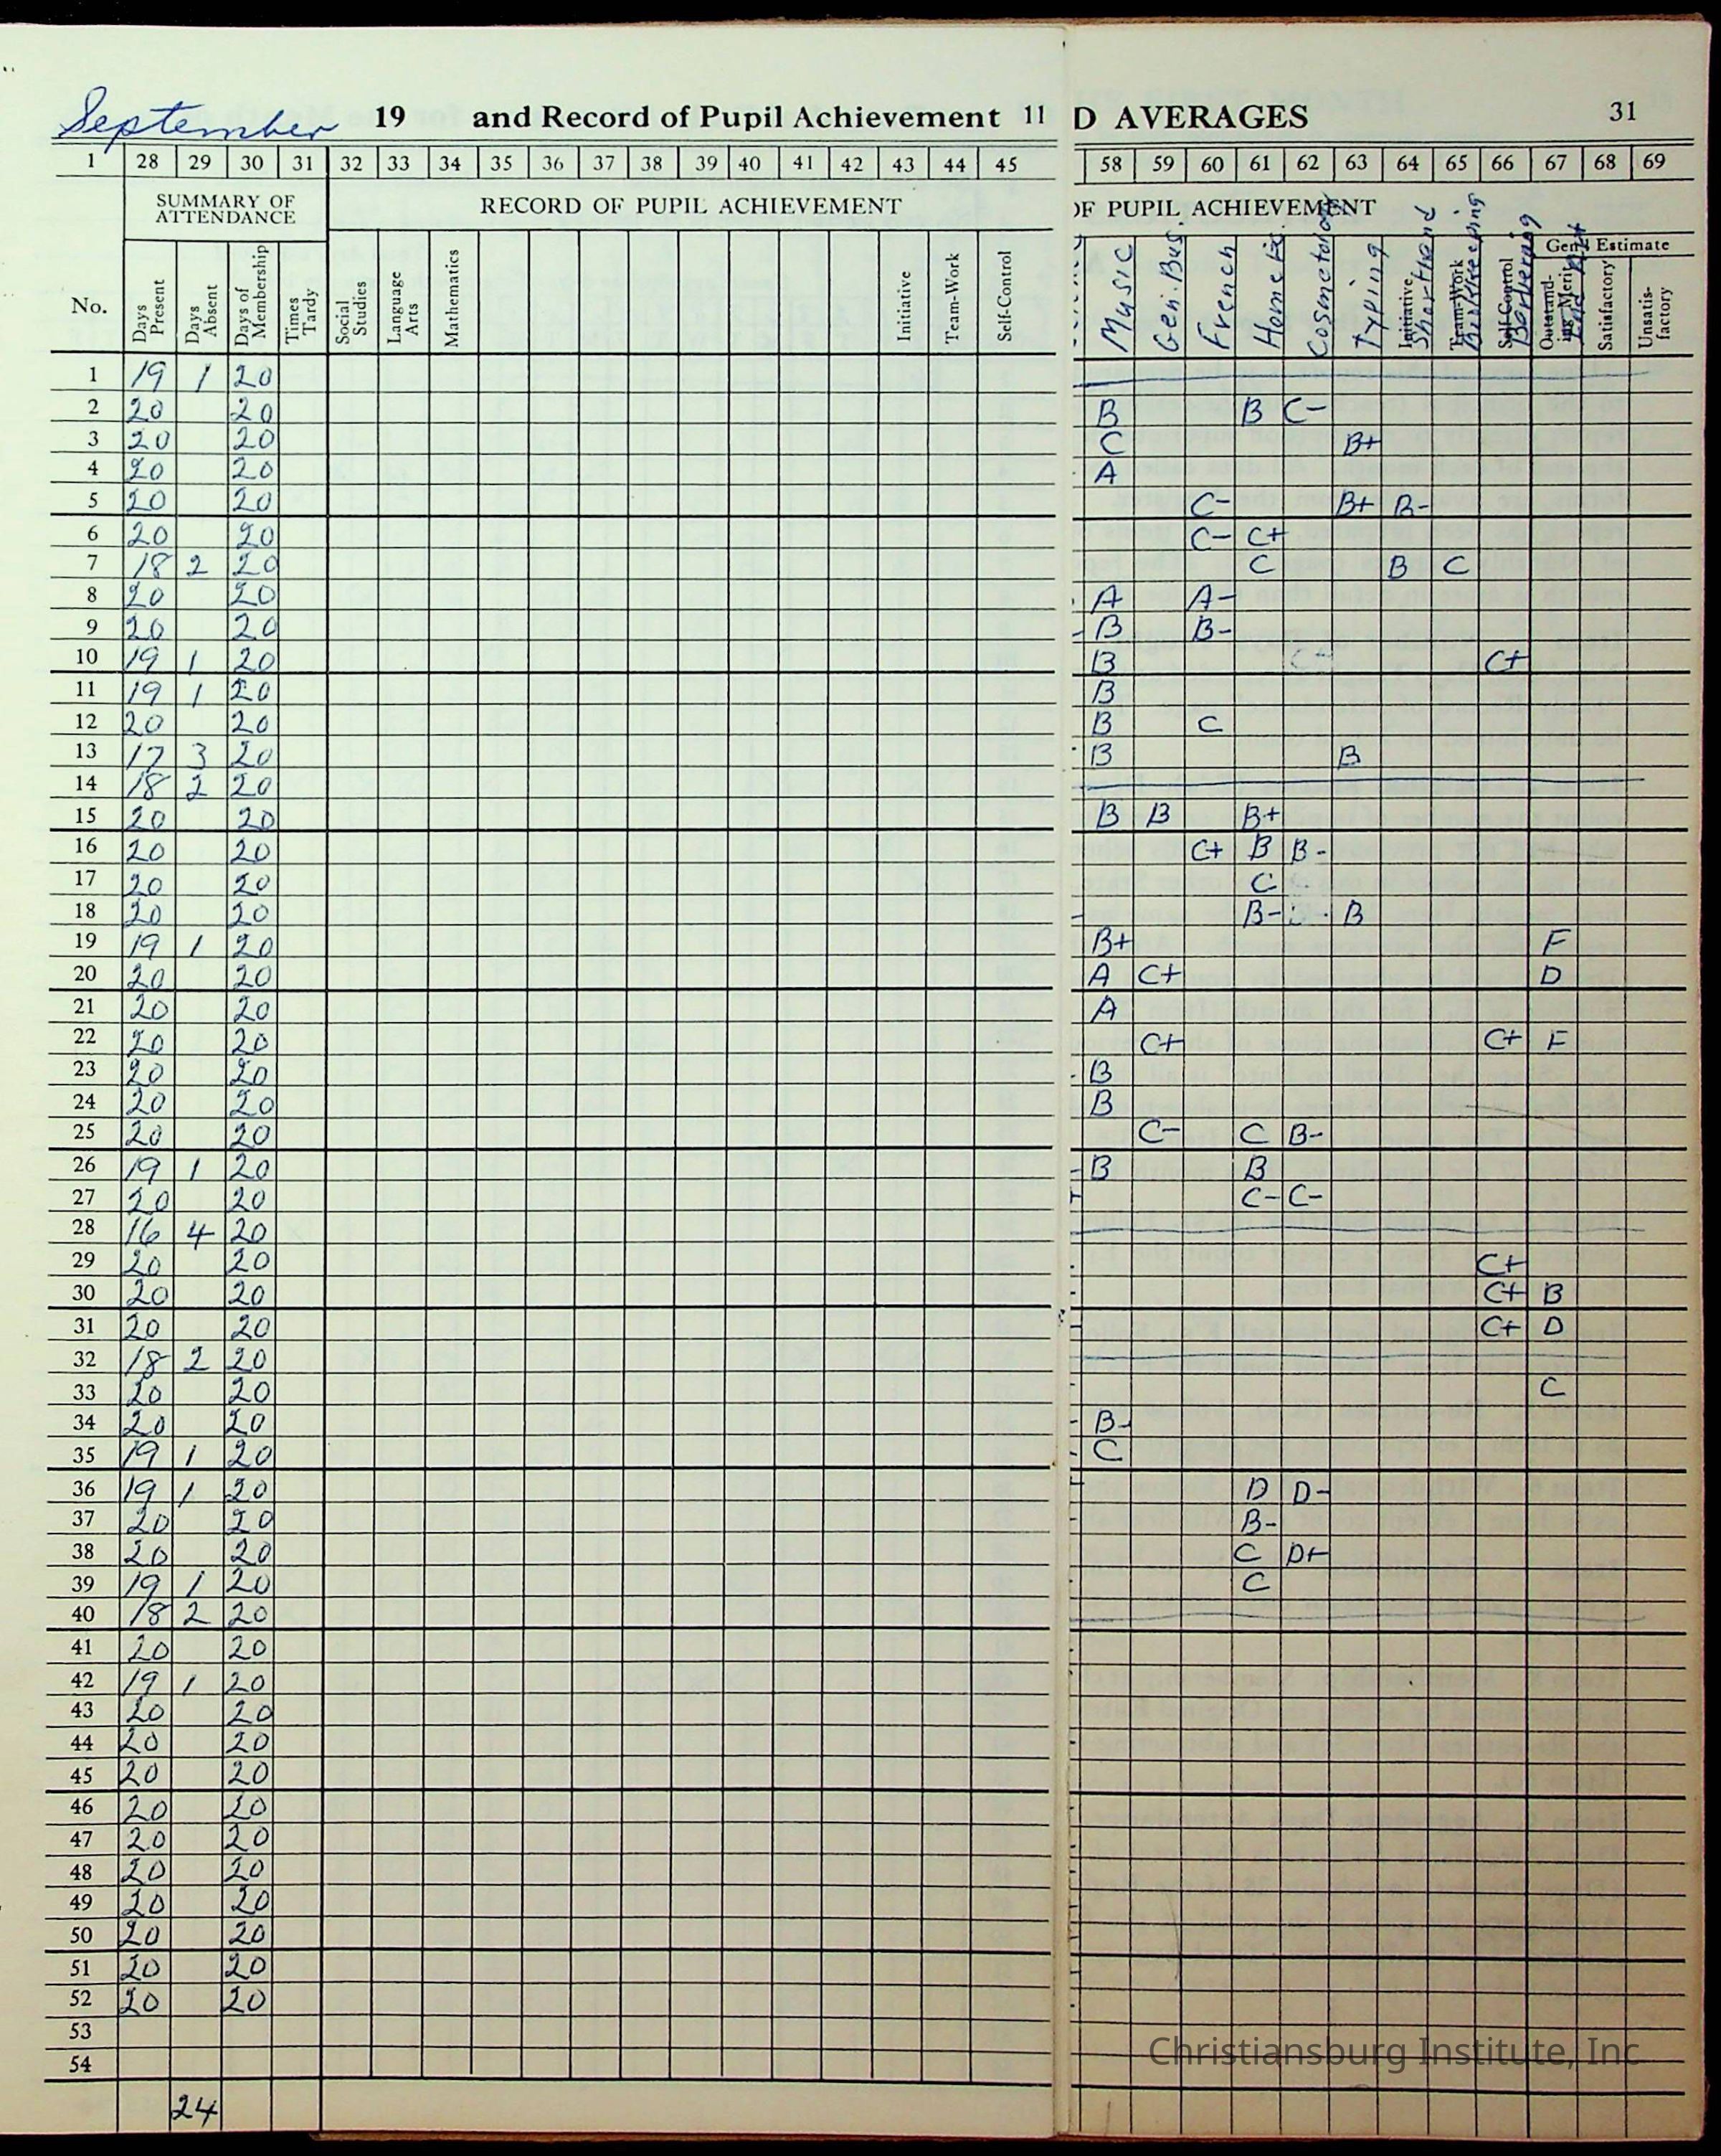 September 19 and Record of Pupil Achievement 11
D AVERAGES 31
1 28 29 30 31 32 33 34 35 36 37 38 39 40 41 42 43 44 45
58 59 60 61 62 63 64 65 66 67 68 69
SUMMARY OF ATTENDANCE RECORD OF PUPIL ACHIEVEMENT
OF PUPIL ACHIEVEMENT
No. Days Present Days Absent Days of Membership Times Tardy Social Studies Language Arts Mathematics Initiative Team-Work Self-Control
Music Gen. Bus. French Home Ec. Cosmetology Typing Initiative Shorthand Team-Work Self-Control Gen'l Estimate Satisfactory Unsatis-factory
1 19 1 20
2 20 20 B B C-
3 20 20 C B+
4 20 20 A
5 20 20 C- B+ B-
6 20 20 C- C+
7 18 2 20 C B C
8 20 20 A A-
9 20 20 B B-
10 19 1 20 B C+
11 19 1 20 B
12 20 20 B C
13 17 3 20 B B
14 18 2 20
15 20 20 B B B+
16 20 20 C+ B B-
17 20 20 C
18 20 20 B- B
19 19 1 20 B+ F
20 20 20 A C+ D
21 20 20 A
22 20 20 C+ C+ F
23 20 20 B
24 20 20 B
25 20 20 C- C B-
26 19 1 20 B B
27 20 20 C- C-
28 16 4 20
29 20 20 C+
30 20 20 C+ B
31 20 20 C+ D
32 18 2 20
33 20 20 C
34 20 20 B-
35 19 1 20 C
36 19 1 20 D D-
37 20 20 B-
38 20 20 C D+
39 19 1 20 C
40 18 2 20
41 20 20
42 19 1 20
43 20 20
44 20 20
45 20 20
46 20 20
47 20 20
48 20 20
49 20 20
50 20 20
51 20 20
52 20 20
53
54
24
Christiansburg Institute, Inc